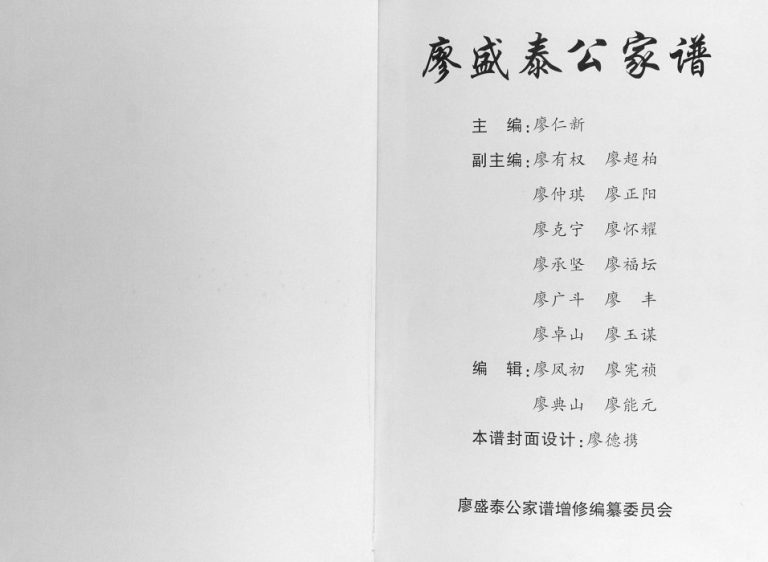 廖盛泰公家谱
主　编：廖仁新
副主编：廖有权　廖超柏
廖仲琪　廖正阳
廖克宁　廖怀耀
廖承坚　廖福坛
廖广斗　廖　丰
廖卓山　廖玉谋
编　辑：廖凤初　廖宪祯
廖典山　廖能元
本谱封面设计：廖德携
廖盛泰公家谱增修编纂委员会